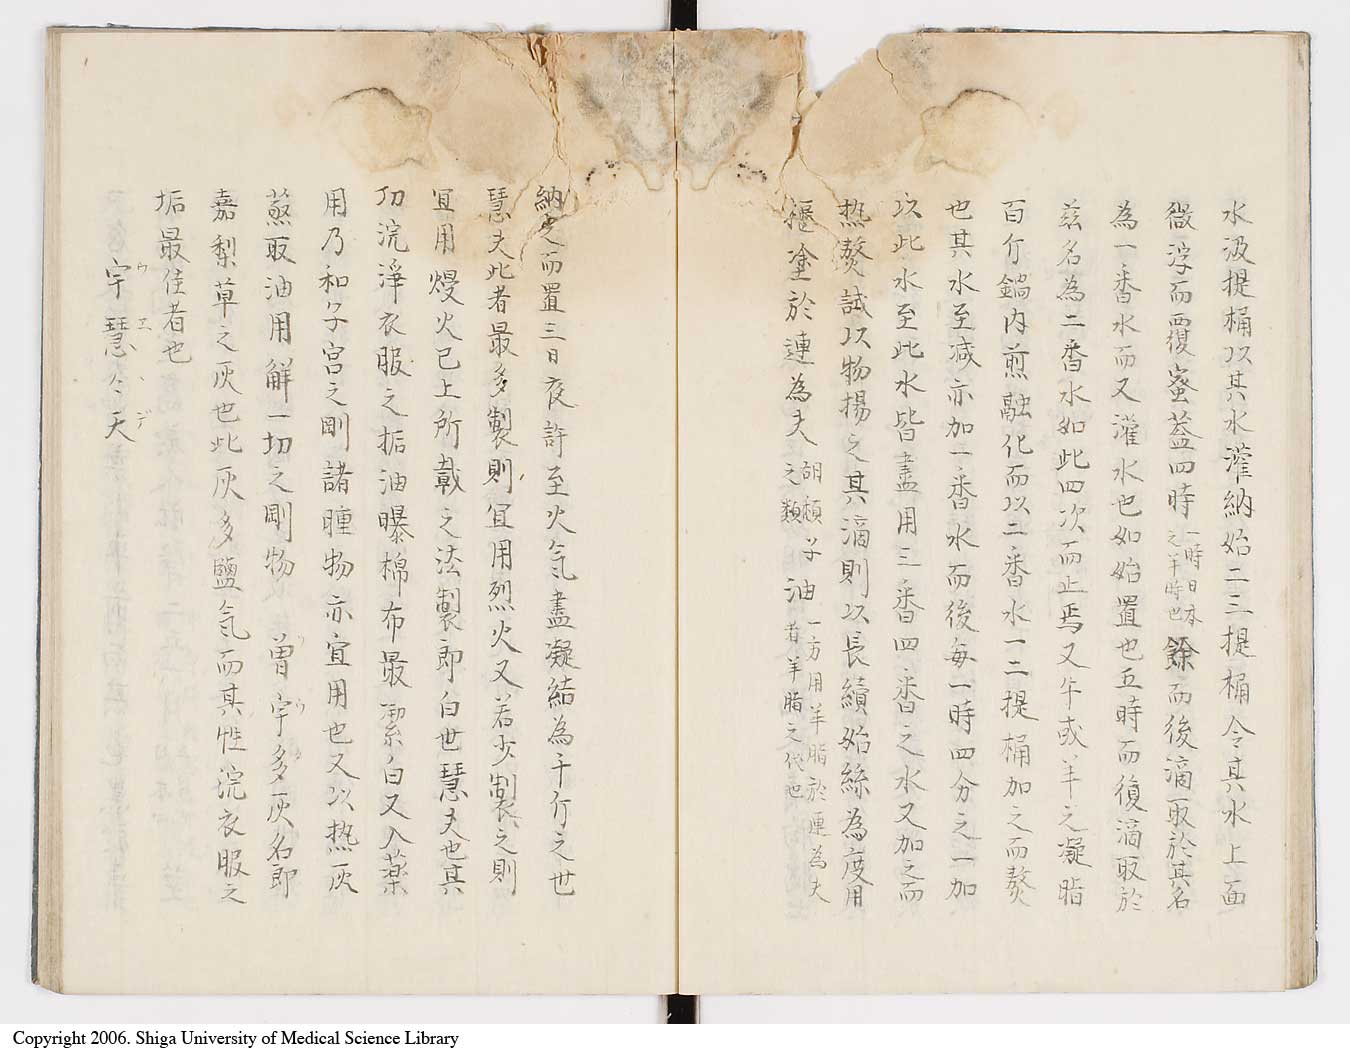 水汲提桶以其水灌納始二三提桶令其水上面
微浮而覆蚉蓋四時一時日本之半時也餘而後滴取於其名
為一番水而又灌水也如始置也五時而復滴取於
茲名為二番水如此四次而止焉又牛或羊之凝脂
百斤鍋内煎融化而以二番水一二提桶加之而熬
也其水至減亦加一番水而後每一時四分之一加
以此水至此水皆盡用三番四番之水又加之而
热熬試以物揚之其滴則以長續始絲為度用
摳塗於連為夫胡椒子之類油一方用羊脂於連為夫者羊脂之代也
納之而置三日夜許至火気盡凝結為千斤之世
慧夫此者最多製則宜用烈火又若少製之則
宜用熳火已上所載之法製即白世慧夫也其
功浣淨衣服之垢油曝棉布最潔白又入薬
用乃和子宮之剛諸腫物亦宜用也又以热灰
蒸取油用解一切之剛物 曽宇多灰名即
嘉梨草之灰也此灰多鹽気而其性浣衣服之
垢最佳者也
宇慧々天
ウエヽデ
Copyright 2006. Shiga University of Medical Science Library